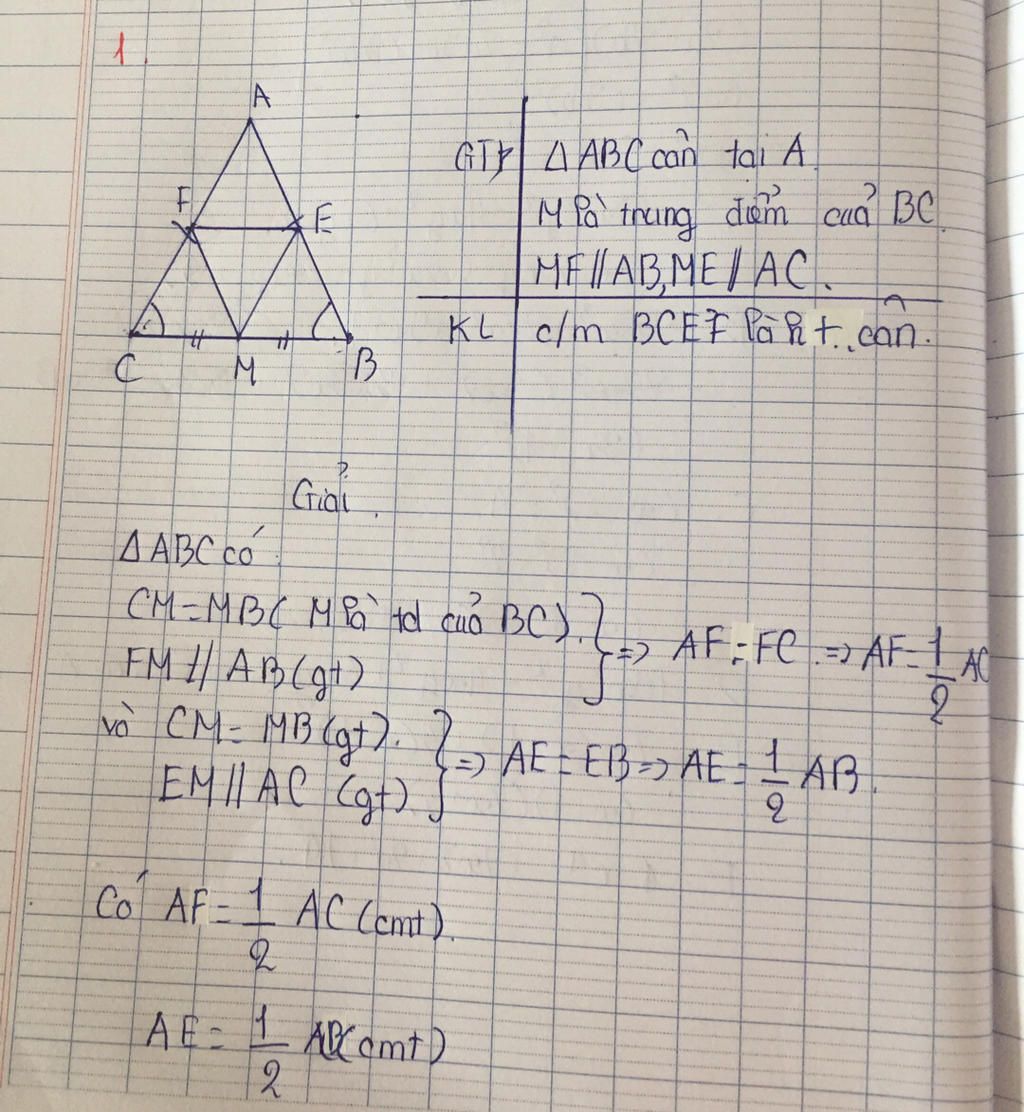 1.
A
F
E
C
M
B
GT
Δ ABC cân tại A.
M là trung điểm của BC.
MF // AB, ME // AC.
KL
c/m BCEF là h t. cân.
Giải.
Δ ABC có
CM = MB ( M là td của BC ). } => AF = FC. => AF = 1/2 AC
FM // AB (gt)
và CM = MB (gt). } => AE = EB => AE = 1/2 AB.
EM // AC (gt)
Có AF = 1/2 AC (cmt).
AE = 1/2 AB (cmt)